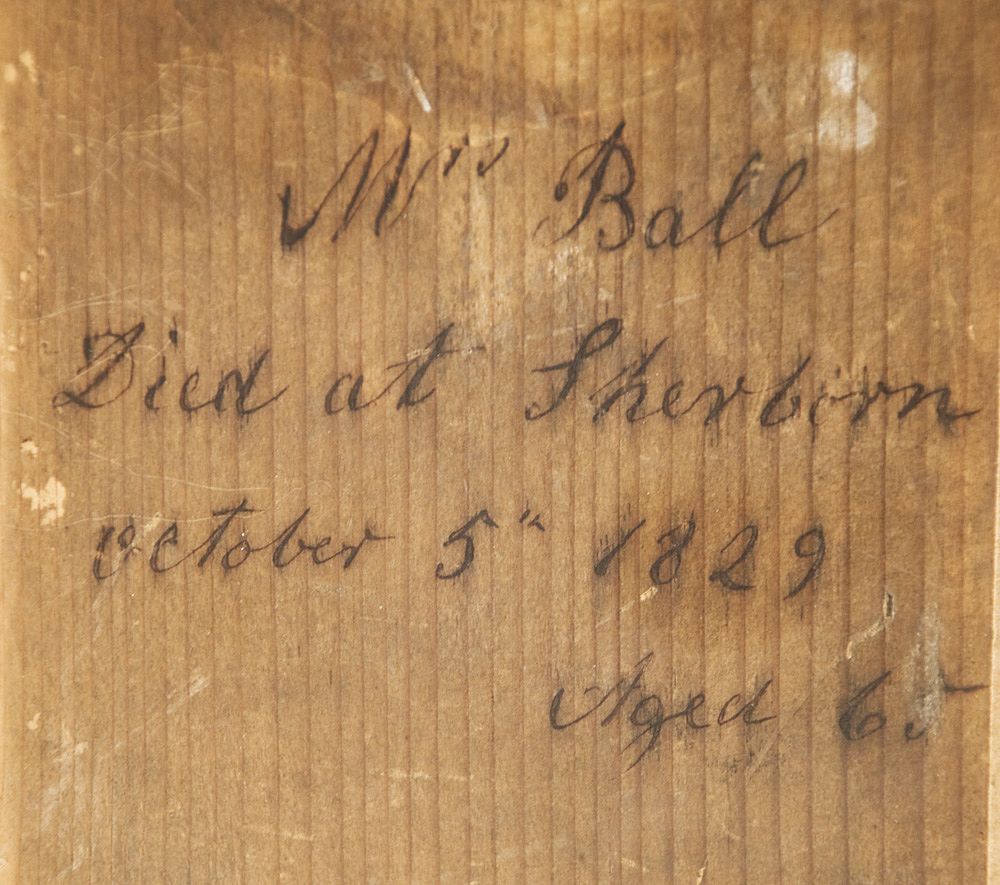 Mrs Ball
Died at Sherborn
October 5" 1829
Aged 65